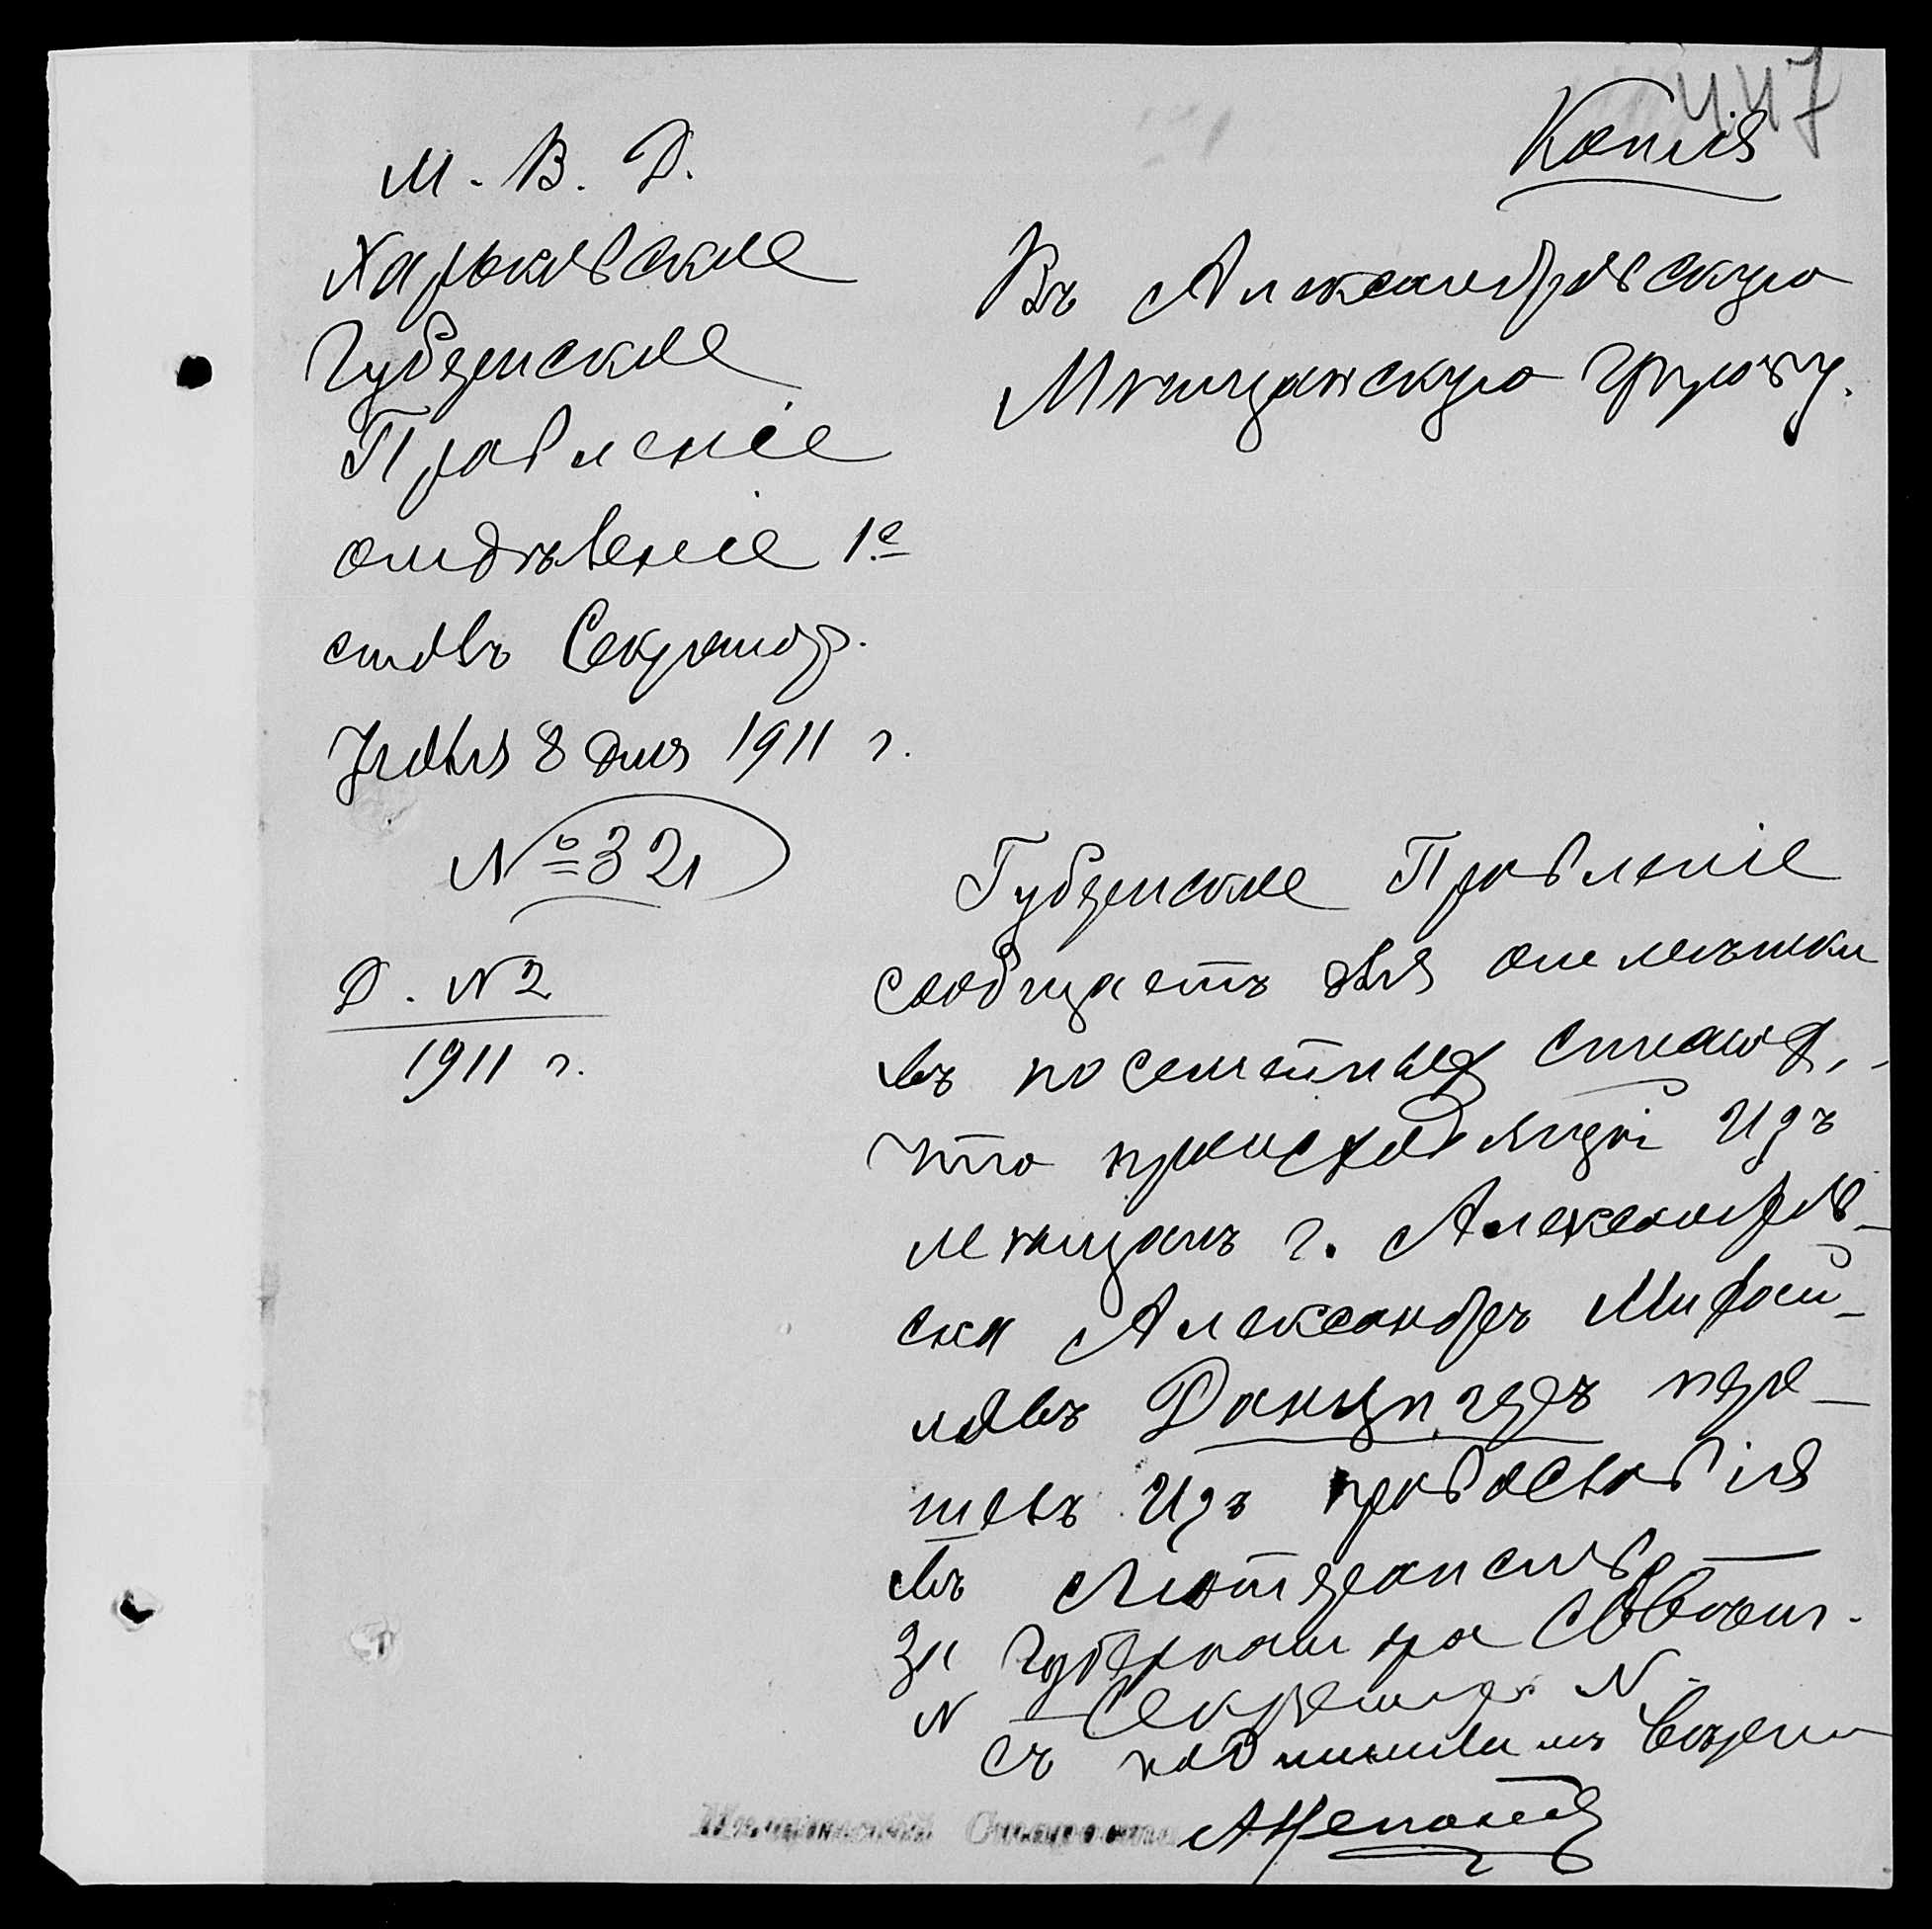 447
Копія
М. В. Д.
Харьковское
Губернское
Правленіе
отдѣленіе 1е
столъ Секретар.
Іюля 8 дня 1911 г.
№ 321
Д. № 2
1911 г.
Въ Александровскую
Мѣщанскую Управу.
Губернское Правленіе
сообщаетъ для отмѣтки
въ посемейныхъ спискахъ,
что происходящій изъ
мѣщанъ г. Александров-
ска Александръ Митрофа-
новъ Данцигеръ пере-
шелъ изъ православія
въ лютеранство
За Губернатора Совѣтн.
N Секретарь N.
съ подлиннымъ вѣрно
Мѣщанскій Староста